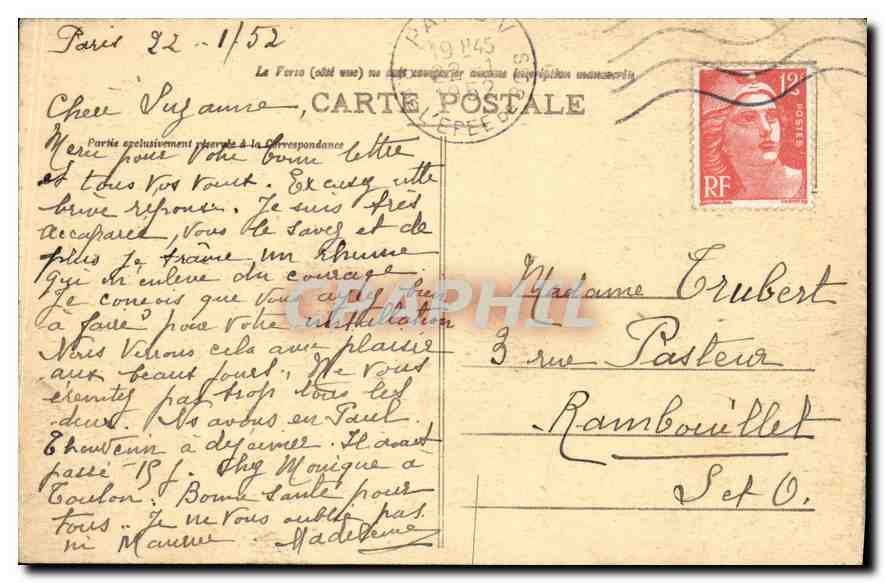 Paris 22 - 1/52
PARIS V
19 H45
22 - 1
1952
L'EPEE
12F
POSTES
RF
Le Verso (côté vue) ne doit comporter aucune inscription manuscrite
CARTE POSTALE
Partie exclusivement réservée à la Correspondance
Chère Suzanne,
Merci pour votre bonne lettre
et tous vos vœux. Excusez cette
brève réponse. Je suis très
accaparée, vous le savez et de
plus je traîne un rhume
qui m'enlève du courage.
Je conçois que vous ayez bien
à faire pour votre installation
Nous verrons cela avec plaisir
aux beaux jours. Ne vous
éreintez pas trop tous les
deux. Ns avons eu Paul
Thouvenin à déjeuner. Il avait
passé 15 j. chez Monique à
Toulon. Bonne santé pour
tous.. Je ne vous oublie pas
ni Maurice. Madeleine
Madame Trubert
3 rue Pasteur
Rambouillet
S et O.
CPAPHIL